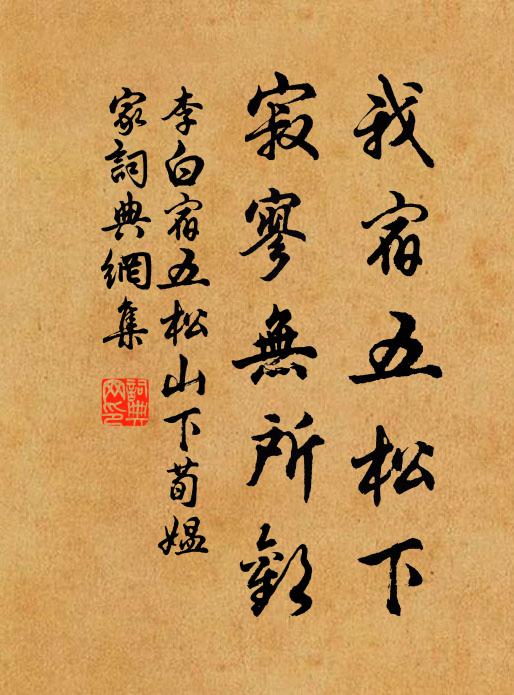 我宿五松下
寂寥無所歡
李白宿五松山下荀媼
家詞典網集
詞典
网印